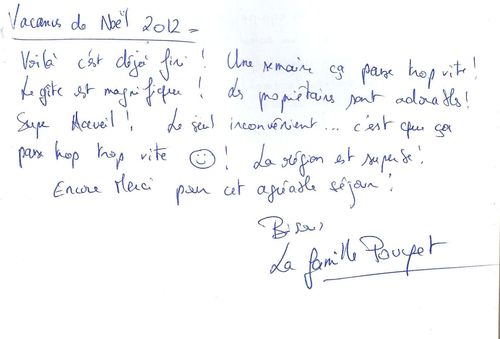 Vacances de Noël 2012 =
Voilà c'est déjà fini ! Une semaine ça passe trop vite !
Le gîte est magnifique ! Les propriétaires sont adorables !
Super Accueil ! Le seul inconvénient... c'est que ça
passe trop trop vite ☺ ! La région est superbe !
Encore Merci pour cet agréable séjour !
Bisous
La famille Poucpet